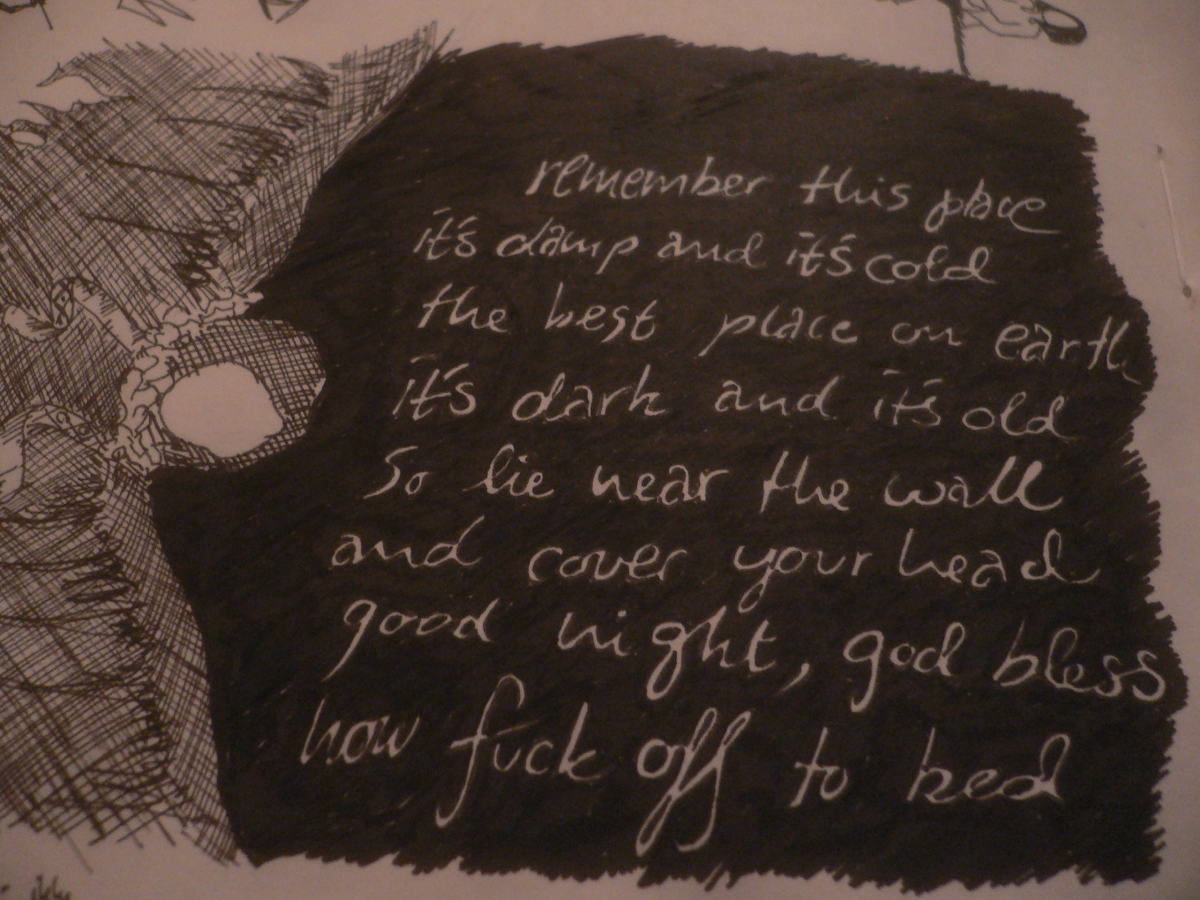 remember this place
it's damp and it's cold
the best place on earth
it's dark and it's old
So lie near the wall
and cover your head
good night, god bless
now fuck off to bed